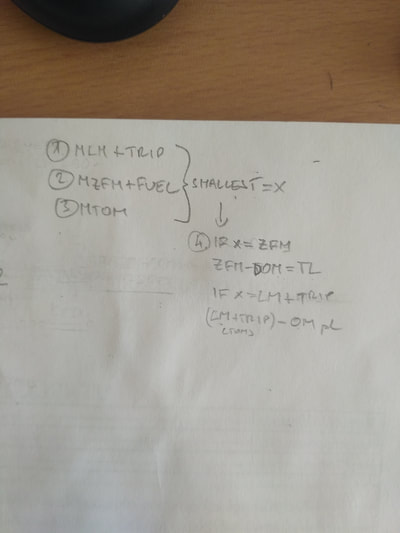 ① MLM + TRIP
② MZFM + FUEL } SMALLEST = X
③ MTOM
↓
④ IF X = ZFM
ZFM - DOM = TL
IF X = LM + TRIP
(LM + TRIP) - OM
(TOM)